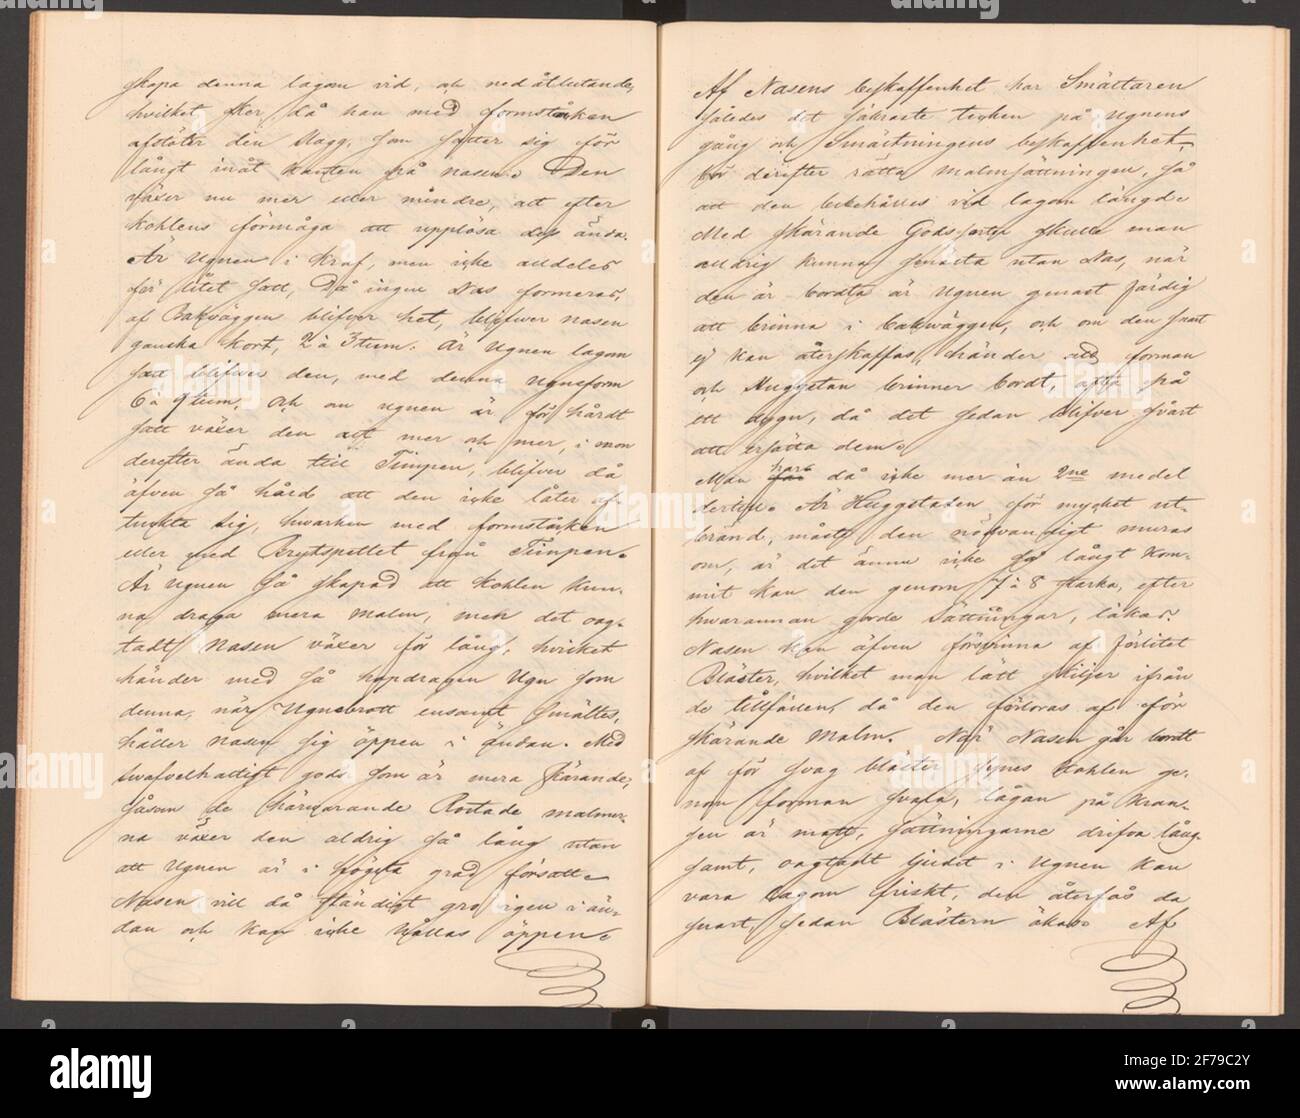 skapa denna lagom vid, och nedåtlutande,
hvilket sker då han med formståken
afstöter den slagg, som sätter sig för
långt inåt kanten på nasen. Den
växer nu mer eller mindre, allt efter
kohlens förmåga att upplösa dess ända.
Är Ugnen i kraf, men icke alldeles
för litet satt, då ingen Nas formeras,
af Bakväggen blifver het, blifwer nasen
ganska kort, 2 à 3 tum. Är Ugnen lagom
satt blifwer den, med denna Ugnsform
6 à 9 tum, och om Ugnen är för hårdt
satt växer den allt mer och mer, i mon
derefter ända till Timpen, blifver då
äfven så hård att den icke låter af-
trycka sig, hwarken med formståcken
eller med Brytspettet från Timpen.
Är Ugnen så skapad att kohlen kun-
na draga mera malm, men det oag-
tadt Nasen växer för lång, hvilket
händer med så hopdragen Ugn som
denna, när Ugnsbrott ensamt smältes,
håller nasen sig öppen i ändan. Med
swafvelhaltigt gods som är mera skärande,
såsom de härwarande Rostade malmer-
na växer den aldrig så lång utan
att Ugnen är i högsta grad försatt.
Nasen vill då ständigt gro igen i än-
dan och kan icke hållas öppen.
Af Nasens beskaffenhet har Smältaren
således det säkraste tecken på Ugnens
gång och Smältningens beskaffenhet,
bör derefter rätta malmsättningen, så
att den bibehålles vid lagom längd.
Med skärande Godssorter skulle man
aldrig kunna smälta utan Nas, när
den är bordta är Ugnen genast färdig
att brinna i bakwäggen, och om den snart
ej kan återskaffas, händer att forman
och Huggstan brinner bordt, ofta på
ett dygn, då det sedan blifver svårt
att ersätta dem.
Man har då icke mer än 2ne medel
dertill. Är Huggstaden för mycket ut-
bränd, måste den nödvändigt muras
om, är det ännu icke så långt kom-
mit kan den genom 7 à 8 starka, efter
hwarannan gjorde Sättningar, läkas.
Nasen kan äfven försvinna af förlitet
Bläster, hvilket man lätt skiljer ifrån
de tillfällen, då den förloras af för
skärande malm. När Nasen går bordt
af för svag bläster synes kohlen ge-
nom forman svala, lågan på kran-
sen är matt, sättningarne drifva lång-
samt, oagtadt ljudet i Ugnen kan
vara lagom friskt, den återfås då
snart, sedan Blästern ökas. Af